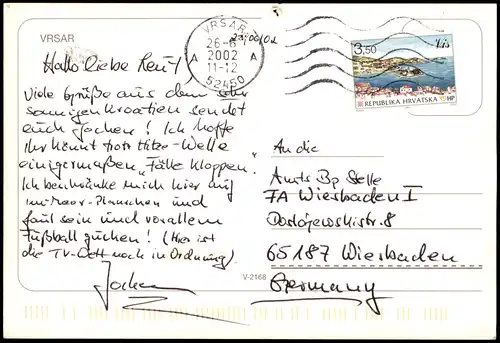 VRSAR
VRSAR
26-6
2002
11-12
A A
52450
3,50
Vis
REPUBLIKA HRVATSKA HP
Hallo liebe Leut!
Viele Grüße aus dem sehr
sonnigen Kroatien sendet
euch Jochen! Ich hoffe
Ihr könnt trotz Hitze-Welle
einigermaßen "Fälle kloppen".
Ich beschränke mich hier auf
im-Meer-Planschen und
faul sein und vor allem
Fußball gucken! (Hier ist
die TV-Welt noch in Ordnung).
Jochen
An die
Amts Bp Stelle
FA Wiesbaden I
Dostojewskistr. 8
65187 Wiesbaden
Germany
V-2168